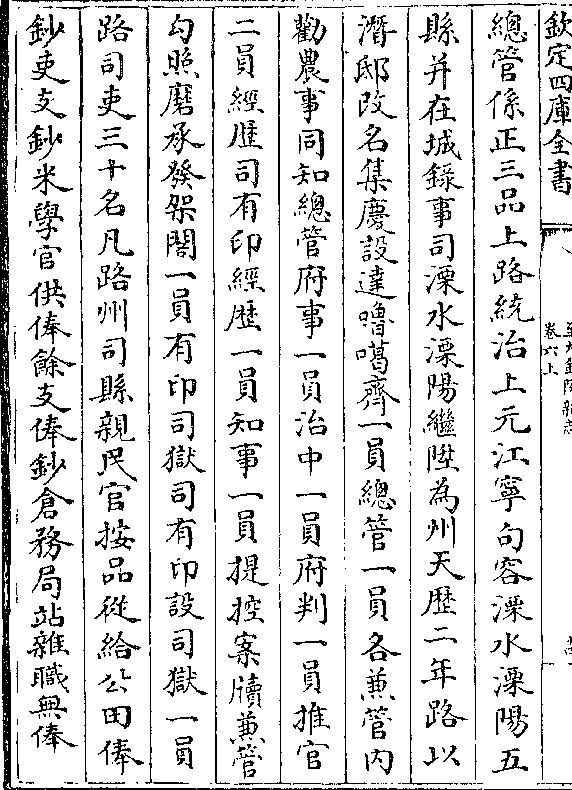 欽定四庫全書
至大金陵新志
卷六上
總管係正三品上路統治上元江寧句容溧水溧陽五
縣并在城錄事司溧水溧陽繼陞為州天歷二年路以
潛邸改名集慶設達嚕噶齊一員總管一員各兼管內
勸農事同知總管府事一員治中一員府判一員推官
二員經歷司有印經歷一員知事一員提控案牘兼管
勾照磨承發架閣一員有印司獄司有印設司獄一員
路司吏三十名凡路州司縣親民官按品從給公田俸
鈔吏支鈔米學官供俸餘支俸鈔倉務局站雜職無俸